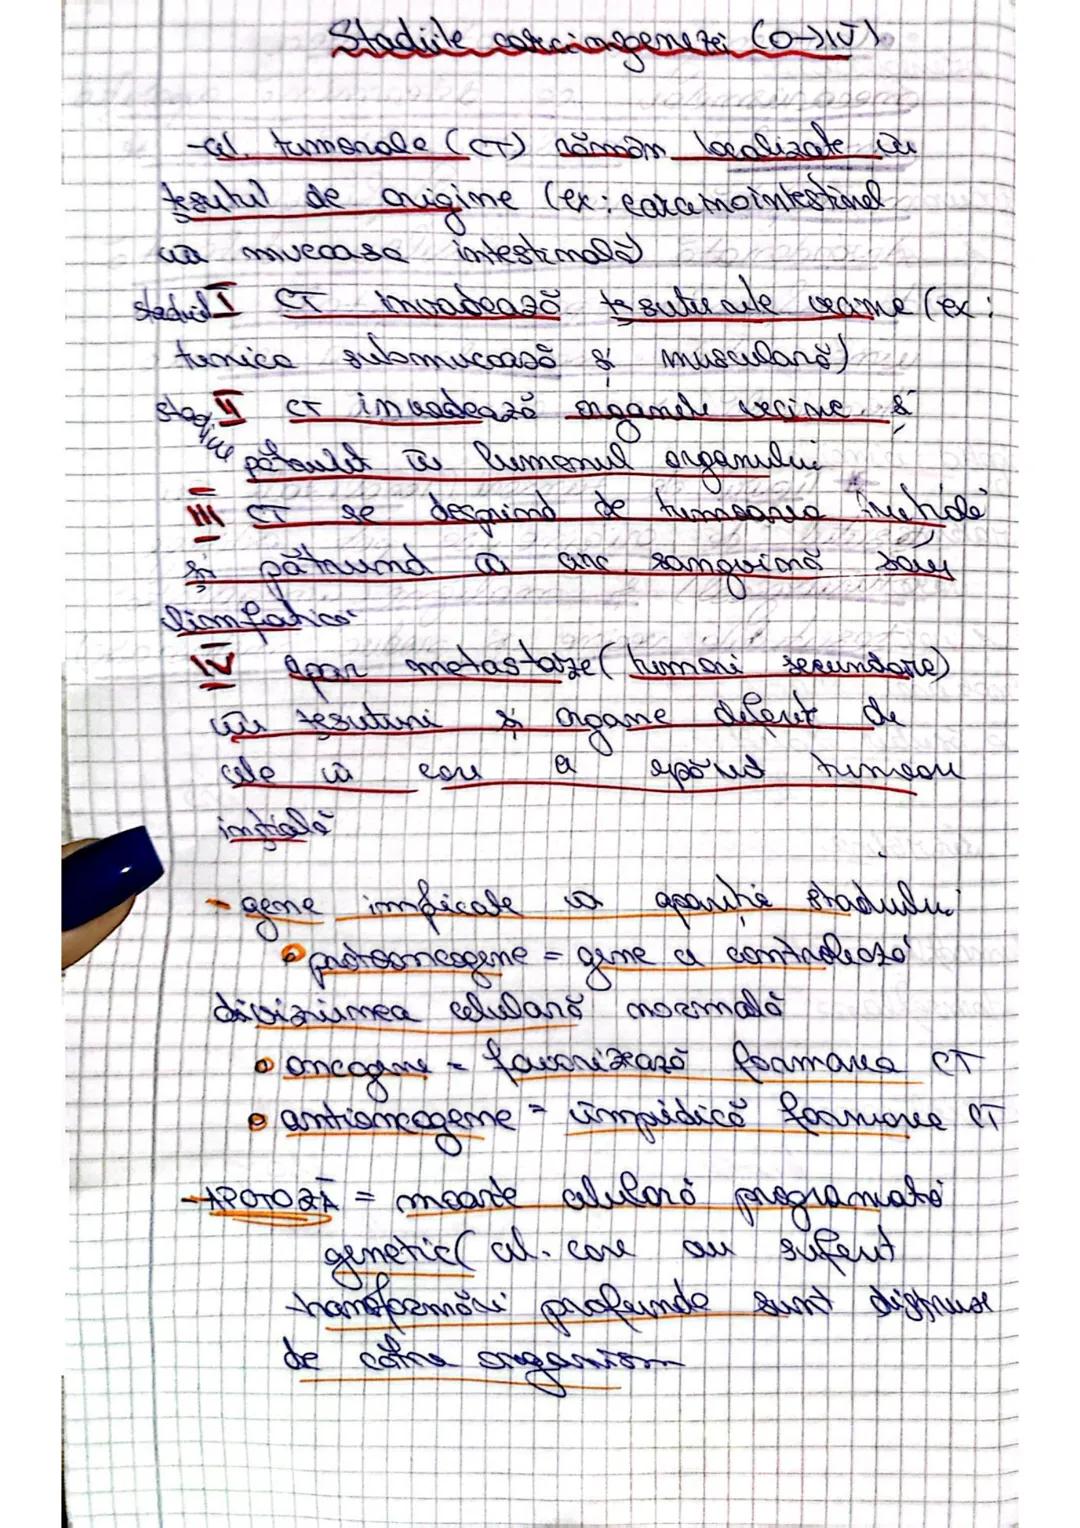 Stadiile carcinogenezei (0→IV)
-cel. tumorale (CT) rămân localizate în
țesutul de origine (ex: carcinointestinal
în mucoasa intestinală)
stadiul I CT invadează țesuturile vecine (ex:
tunica submucoasă și musculară)
II CT invadează organele vecine și
în lumenul organului
III CT se desprind de tumoarea inițială
și pătrund în circ. sanguină sau
limfatică
IV apar metastaze (tumori secundare)
în țesuturi și organe diferit de
cele în care a apărut tumoare
inițială
- gene implicate în apariția stadiului
• protooncogene = gene ce controlează
diviziunea celulară normală
• oncogene = favorizează formarea CT
• antioncogene = împidică formarea CT
-APOTOZĂ = moarte celulară programată
genetic (cel. care au suferit
transformări profunde sunt distruse
de către organism